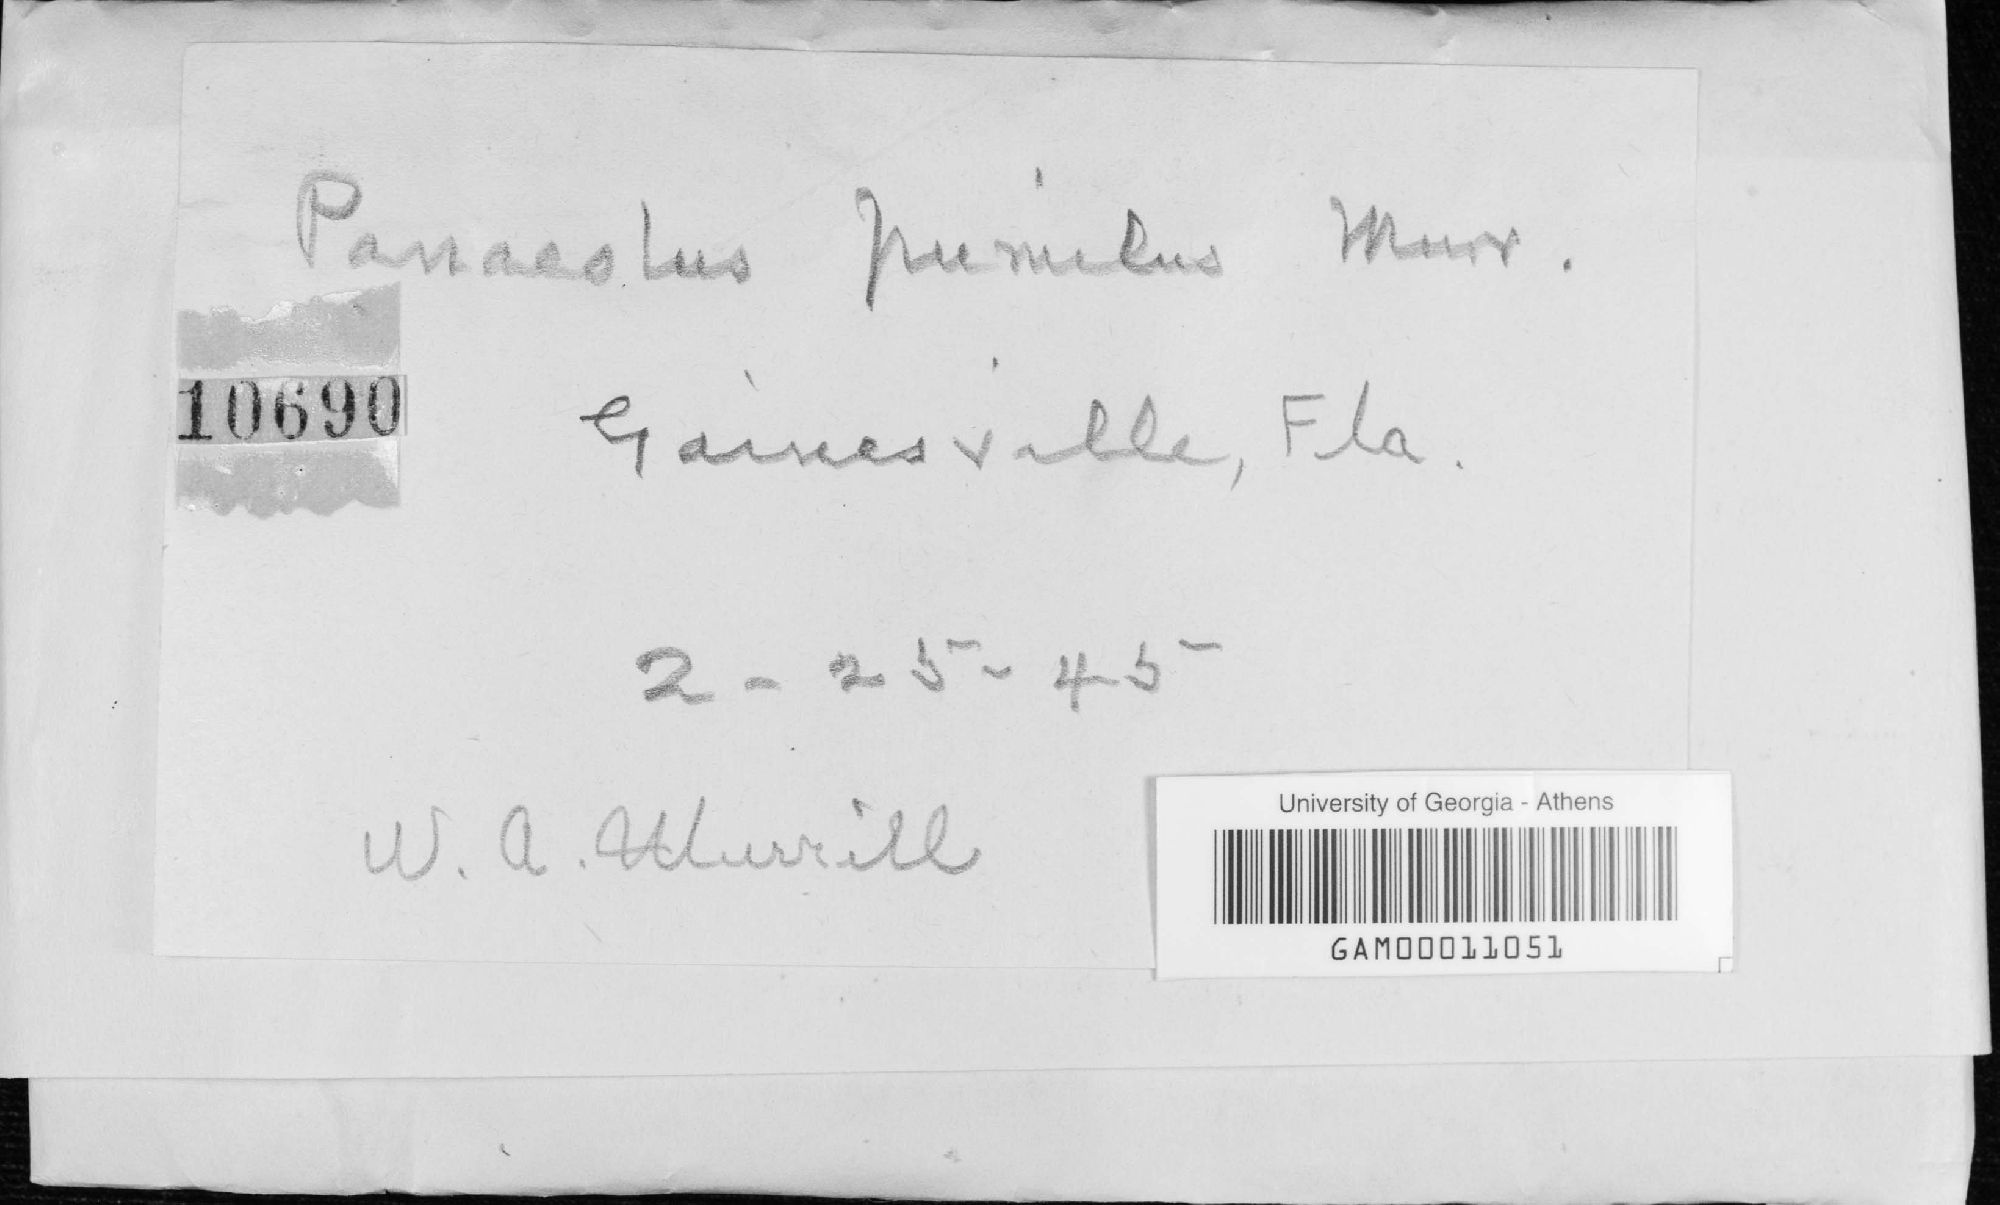 Panaeolus pumilus Murr.
10690
Gainesville, Fla.
2-25-45
W. A. Murrill
University of Georgia - Athens
GAM00011051